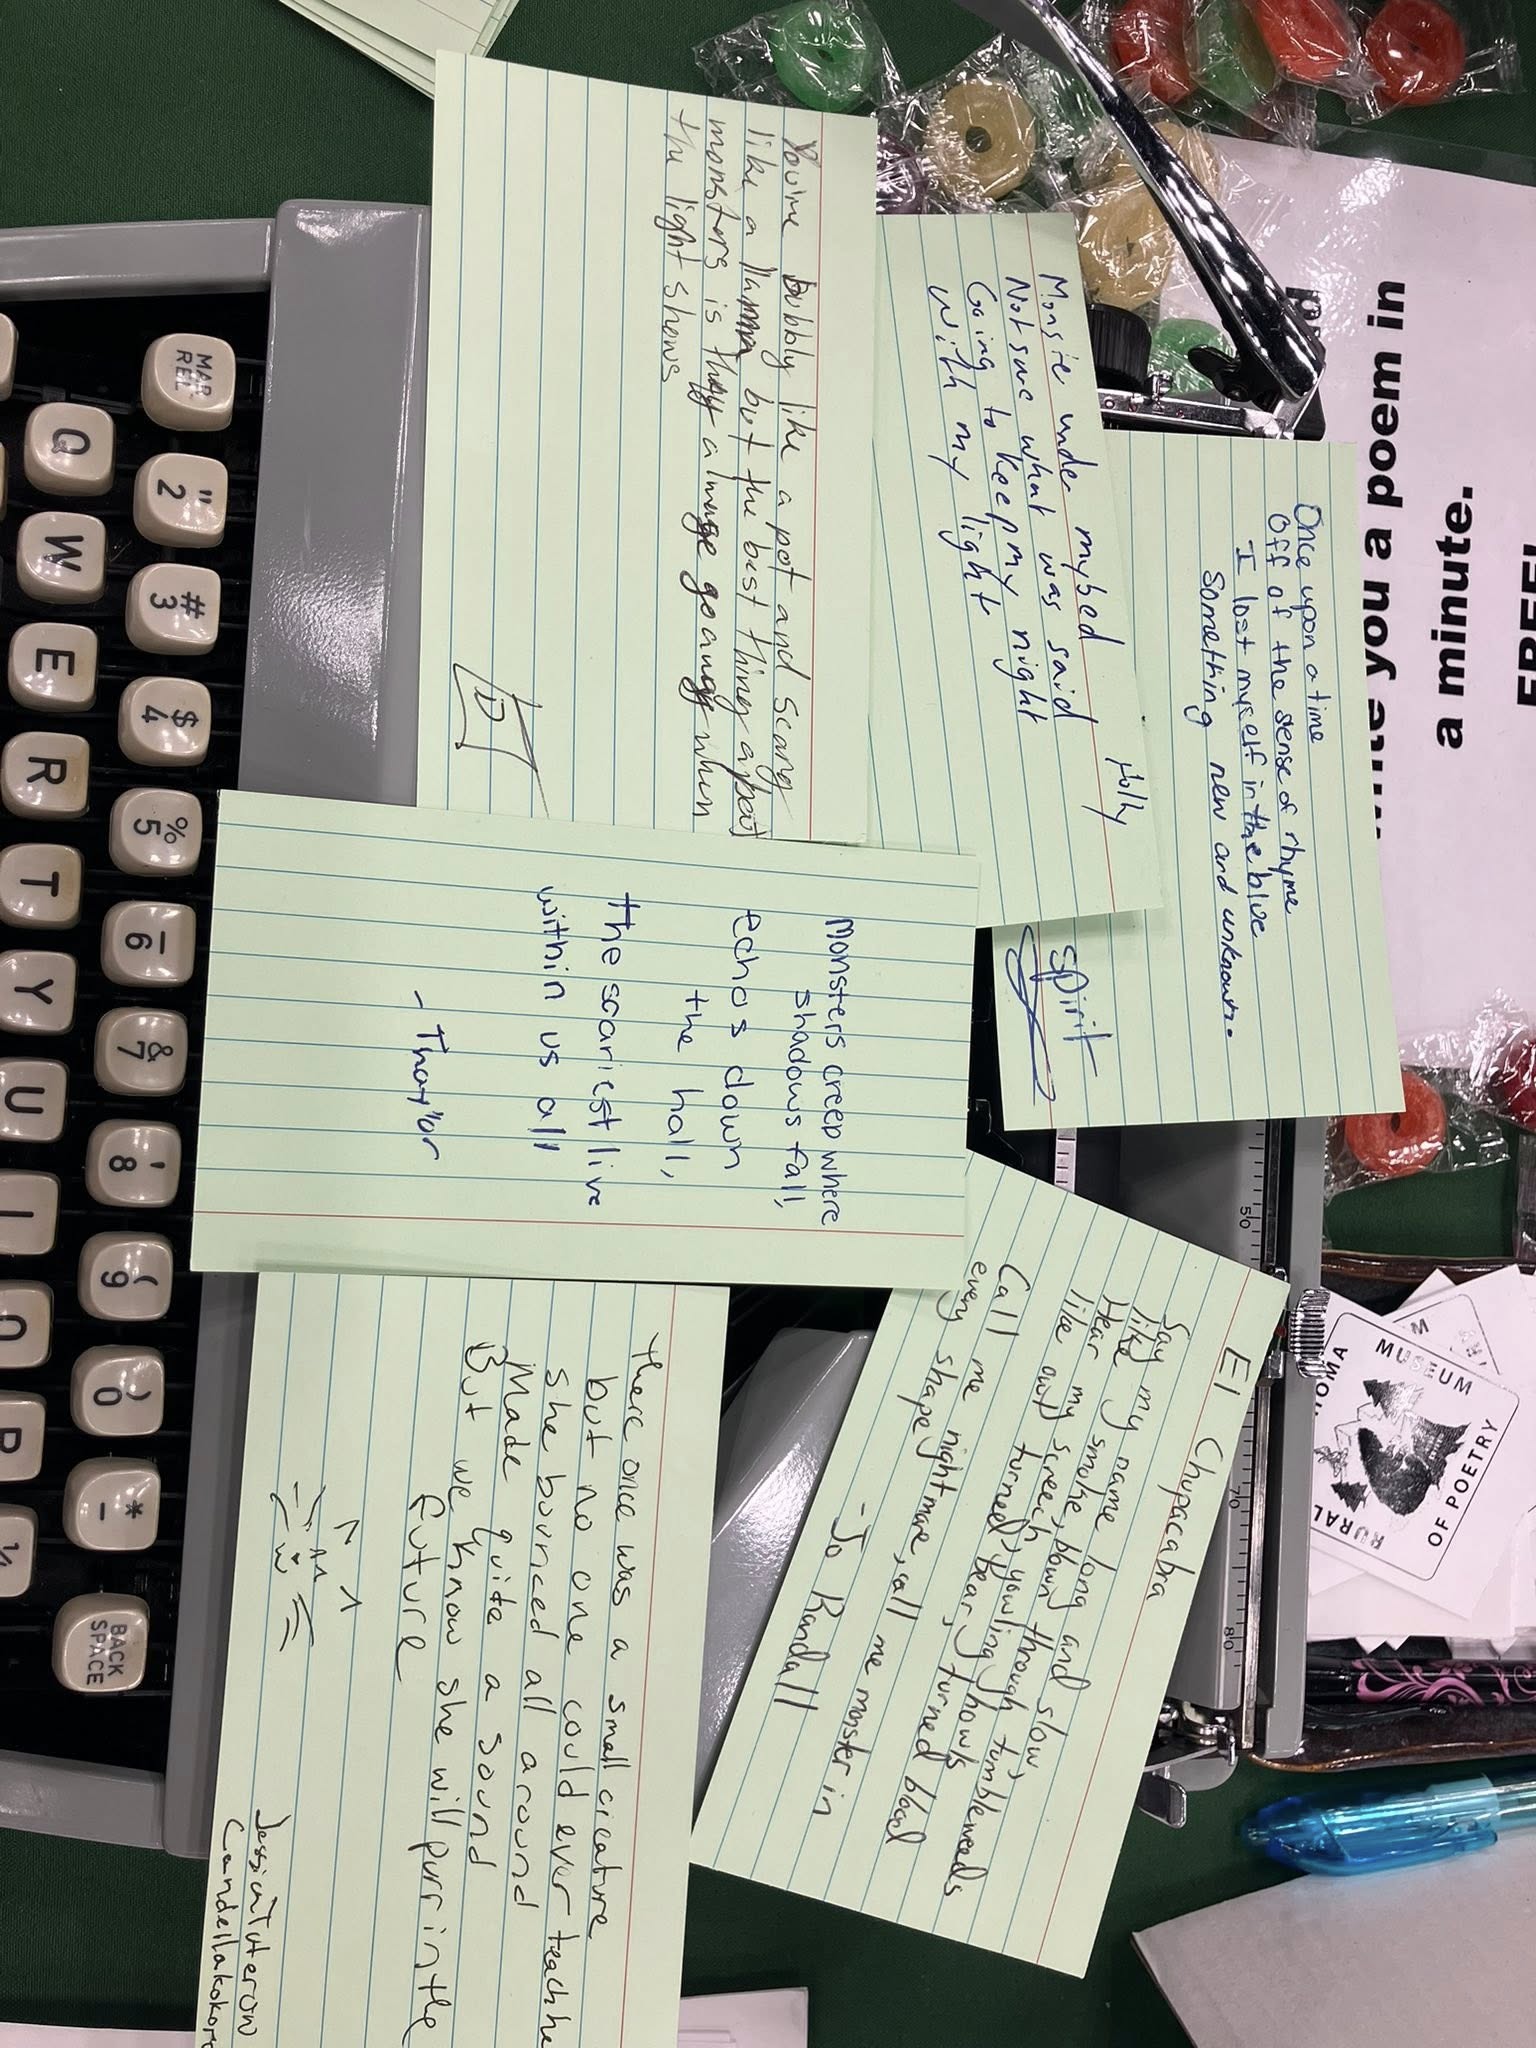 you a poem in
a minute.
Once upon a time
Off of the sense of rhyme
I lost myself in the blue
Something new and unknown.
spirit
Holly
Monsie under mybed
Not sure what was said
Going to keep my night
With my light
You're bubbly like a pot and scary
like a llama but the best thing about
monsters is they a image go away when
the light shows
D
Monsters creep where
shadows fall,
Echos down
the hall,
the scariest live
within us all
El Chupacabra
Say my name long and slow,
like smoke, blown through tumbleweeds
Hear my screech, yowling howls
like owl turned bear, turned blood
Call me nightmare, call me monster in
every shape
- Jo Randall
there once was a small creature
but no one could ever teach he
She bounced all around
Made quite a sound
But we know she will purr in the
future
MUSEUM
OF POETRY
RURAL
OMA
M
50
70
80
MAR
REL
"
2
#
3
$
4
%
5
6
&
7
'
8
(
9
)
0
*
-
BACK
SPACE
Q
W
E
R
T
Y
U
I
O
P